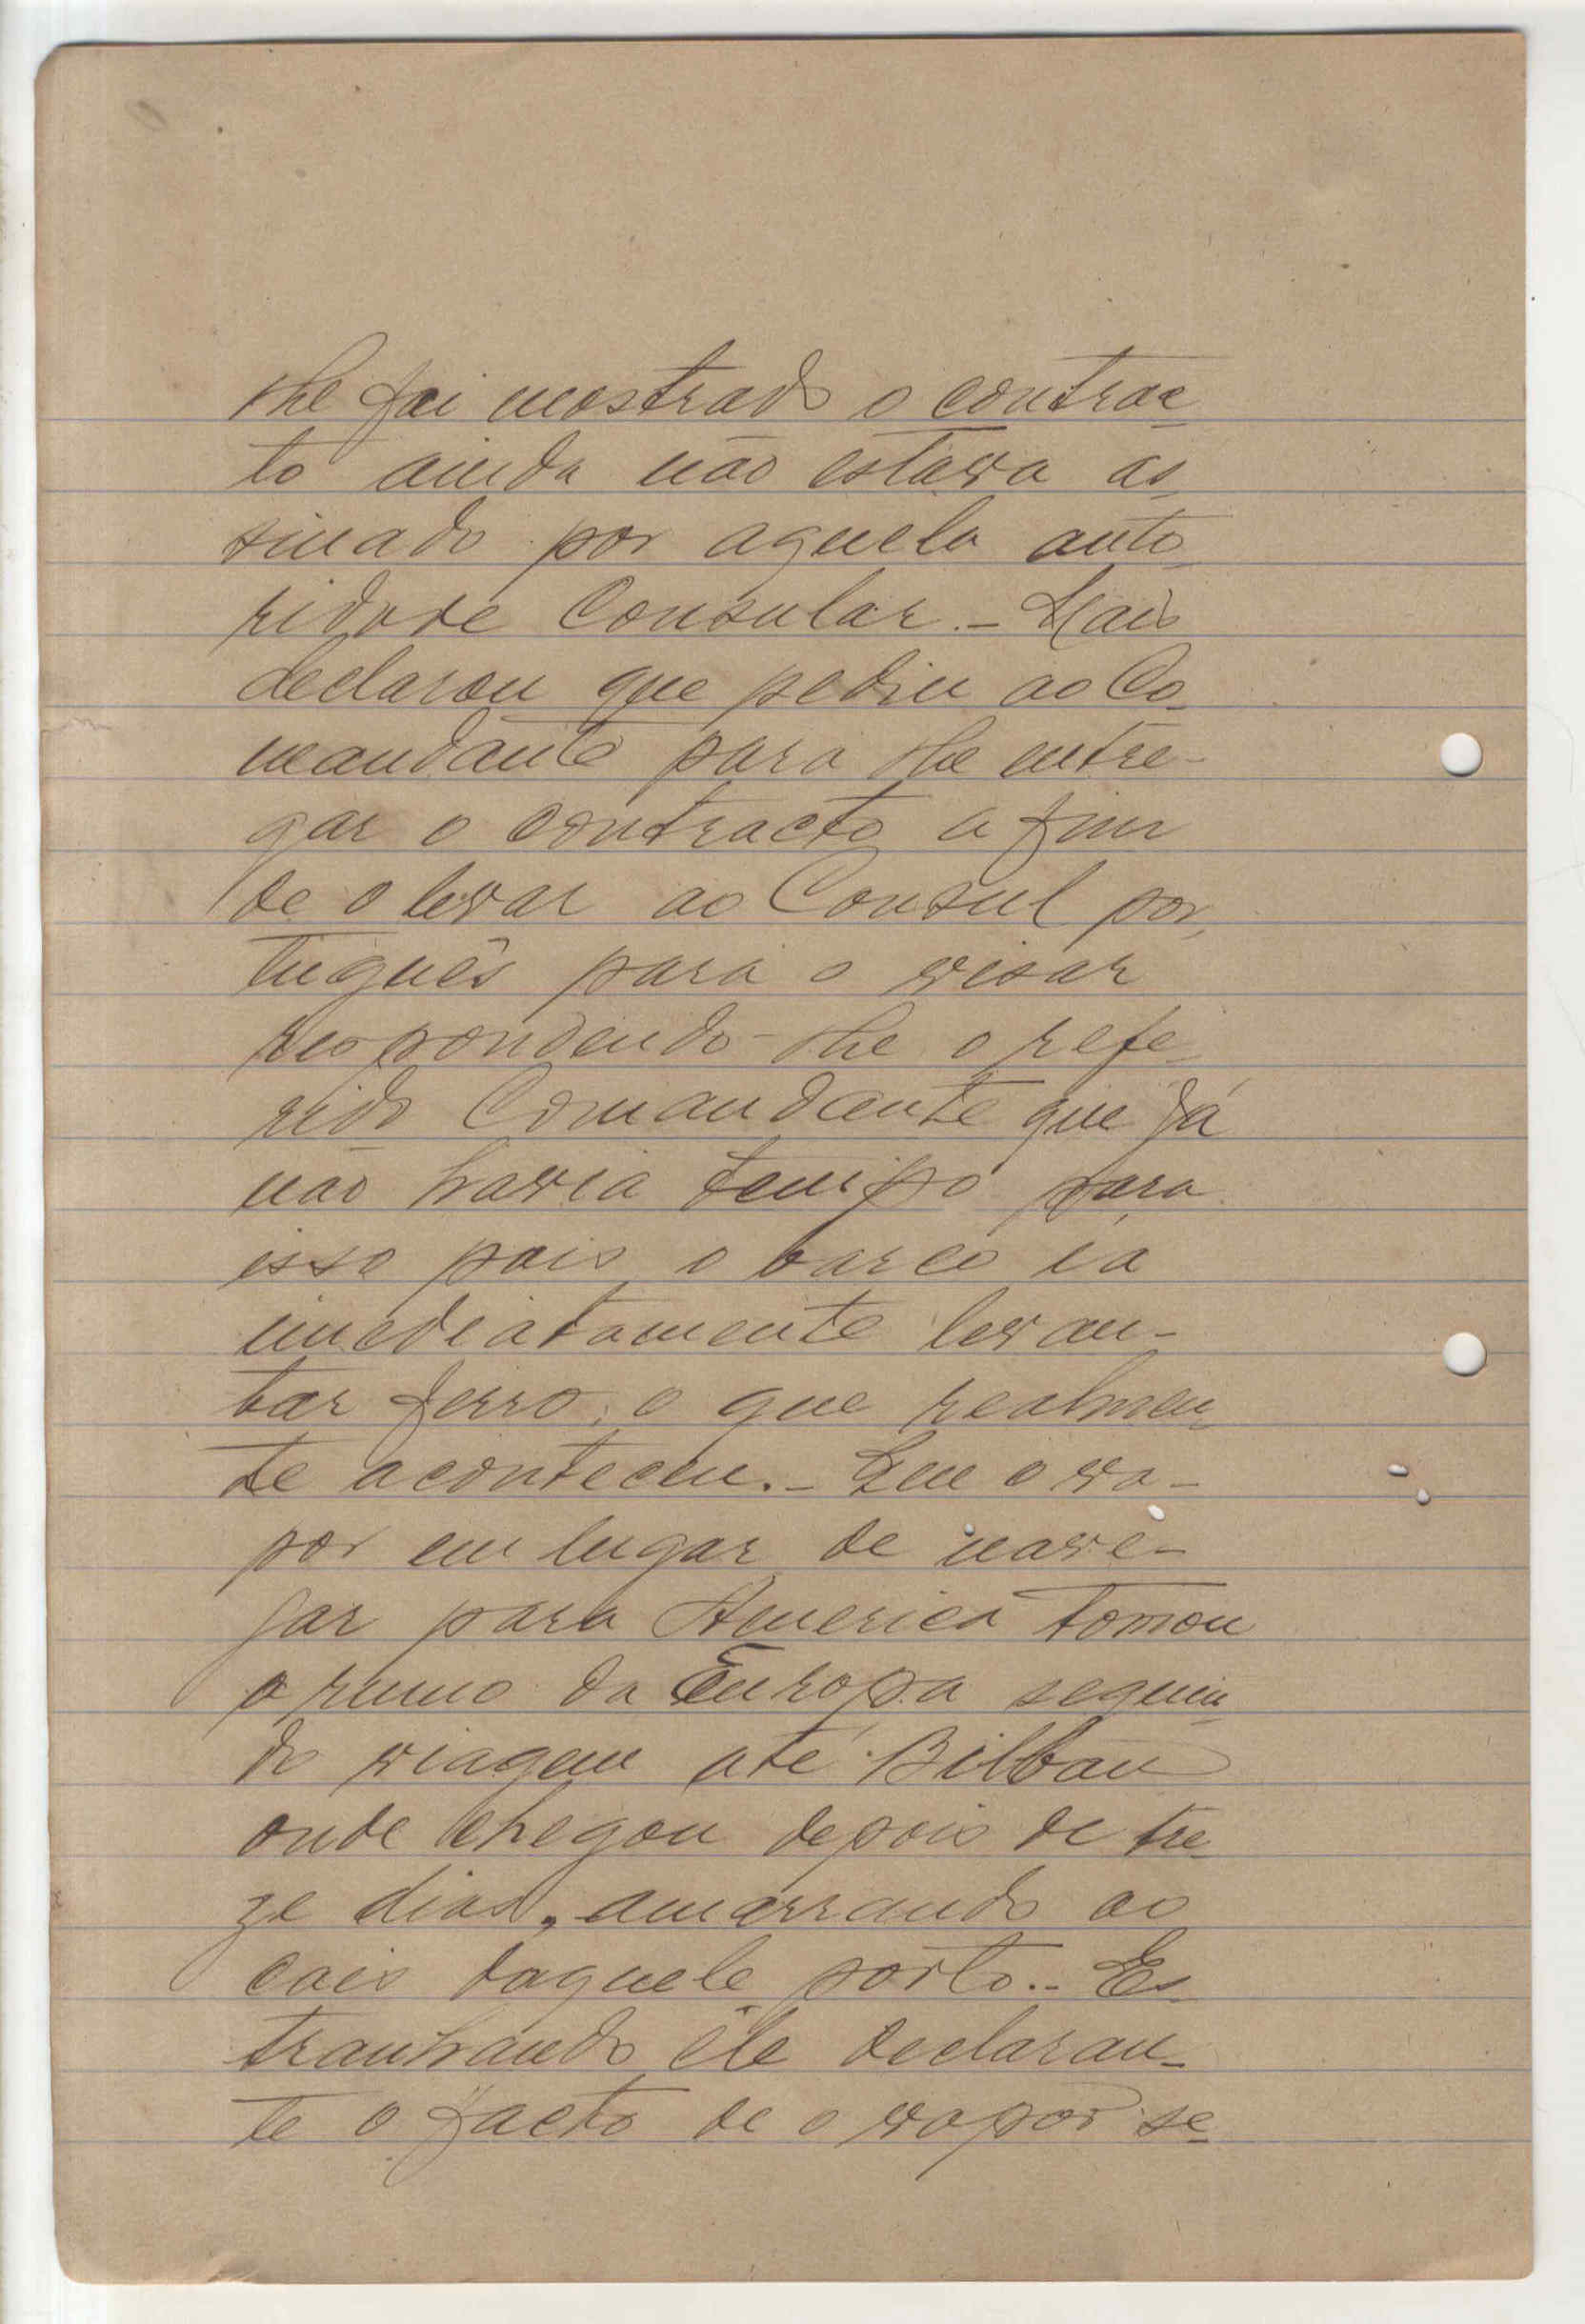 lhe foi mostrado o contrac-
to ainda não estava as-
sinado por aquela auto-
ridade Consular. - Mais
declarou que pediu ao Co-
mandante para lhe entre-
gar o contracto a fim
de o levar ao Consul por-
tuguês para o visar
respondendo-lhe o refe-
rido Comandante que já
não havia tempo para
isso pois o barco ia
imediatamente levan-
tar ferro, o que realmen-
te aconteceu. - Que o va-
por em lugar de nave-
gar para America tomou
o rumo da Europa seguin-
do viagem até Bilbau
onde chegou depois de tre-
ze dias, amarrando ao
cais daquele porto. - Es-
tranhando êle declaran-
te o facto de o vapor se-